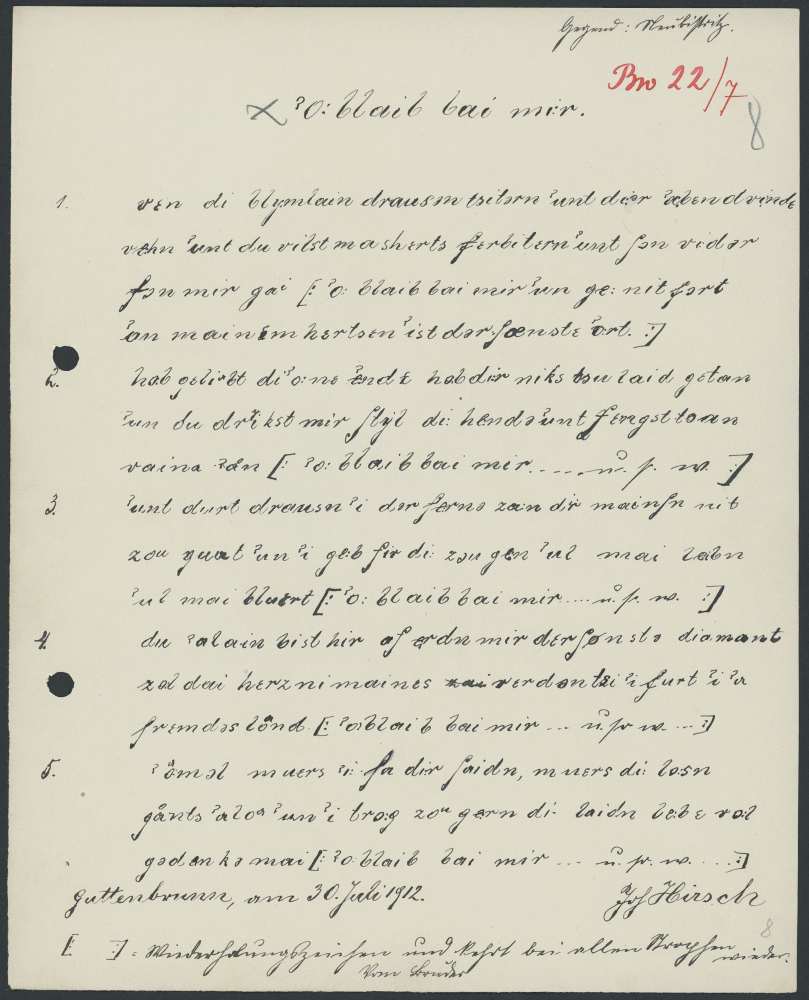 Gegend: Neubistritz.
Bw 22/7
8
ˀo: blaib bai mir.
1. ven di blymlain drausən tsitərn ˀunt dər ˀabendvində
vehn ˀunt du vilst ma s herts ferbitern ˀunt ʃon vidər
fon mir gai [: ˀo: blaib bai mir ˀun ge: nit fort
ˀan mainem hertsen ˀist dər ʃœnste ˀort. :]
2. hab geliabt di ˀo:ne ˀende hab dir niks tsu laid getan
ˀun du drikst mir ʃtyl di: hendə ˀunt fengst tsan
vaina ˀån [: ˀo: blaib bai mir .... u. s. w. :]
3. ˀunt durt drausn ˀi dər fernə za:n dir mainʃn nit
zou guat ˀun ˀi geb fir di: zougen ˀul mai lebn
ˀul mai bluert [: ˀo: blaib bai mir .... u. s. w. :]
4. du ˀalain bist hir af erdn mir der ʃønstə diamant
zol dai herz ni maines verdən tsi ˀi furt ˀi ˀa
fremdəs lånd. [: ˀo: blaib bai mir ... u. s. w. ... :]
5. ˀåmol muers ˀi fa dir ʃaidn, muers di: losn
gånts ˀaloa ˀun ˀi tro:g zou gern di: laidn lebe vol
gedenke mai [: ˀo: blaib bai mir ... u. s. w. ... :]
Guttenbrunn, am 30. Juli 1912. Joh Hirsch
8
[: :] = Wiederholungszeichen und kehrt bei allen Strophen wieder.
Vom Bruder